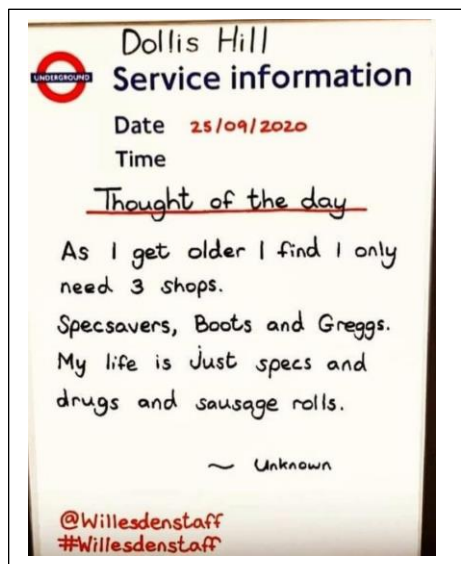 Dollis Hill
UNDERGROUND
Service information
Date 25/09/2020
Time
Thought of the day
As I get older I find I only
need 3 shops.
Specsavers, Boots and Greggs.
My life is just specs and
drugs and sausage rolls.
~ Unknown
@Willesdenstaff
#Willesdenstaff